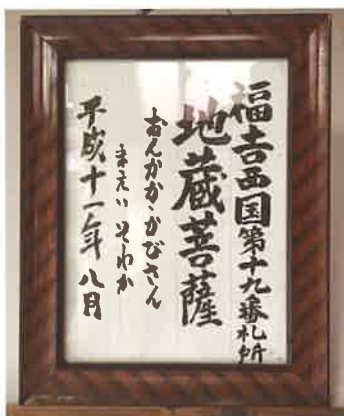 福吉西国第十九番札所
地蔵菩薩
おんかかかびさん
まえいそわか
平成十一年 八月